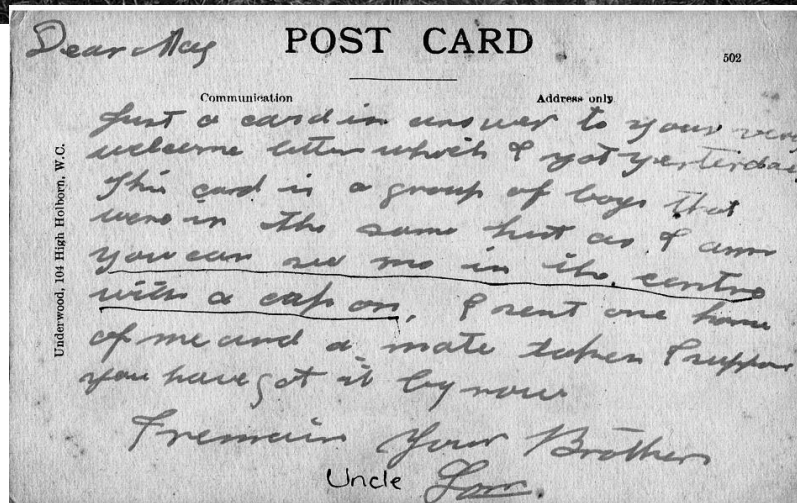 Dear May
POST CARD
502
Communication
Address only.
Underwood, 104 High Holborn, W.C.
Just a card in answer to your very
welcome letter which I got yesterday
This card is a group of boys that
were in the same hut as I am
you can see me in the centre
with a cap on, I sent one home
of me and a mate taken I suppose
you have got it by now
I remain Your Brother
Uncle